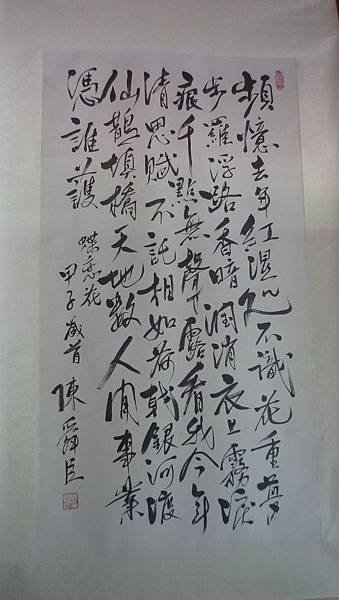 頻憶去年紅濕处不識花重夢
步羅浮路香暗潤消衣上霧淚
痕千點無聲露看我今年
清思賦不託相如荷戟銀河渡
仙鵲填橋天地數人間事業
憑誰護
蝶恋花
甲子歲首 陳舜臣